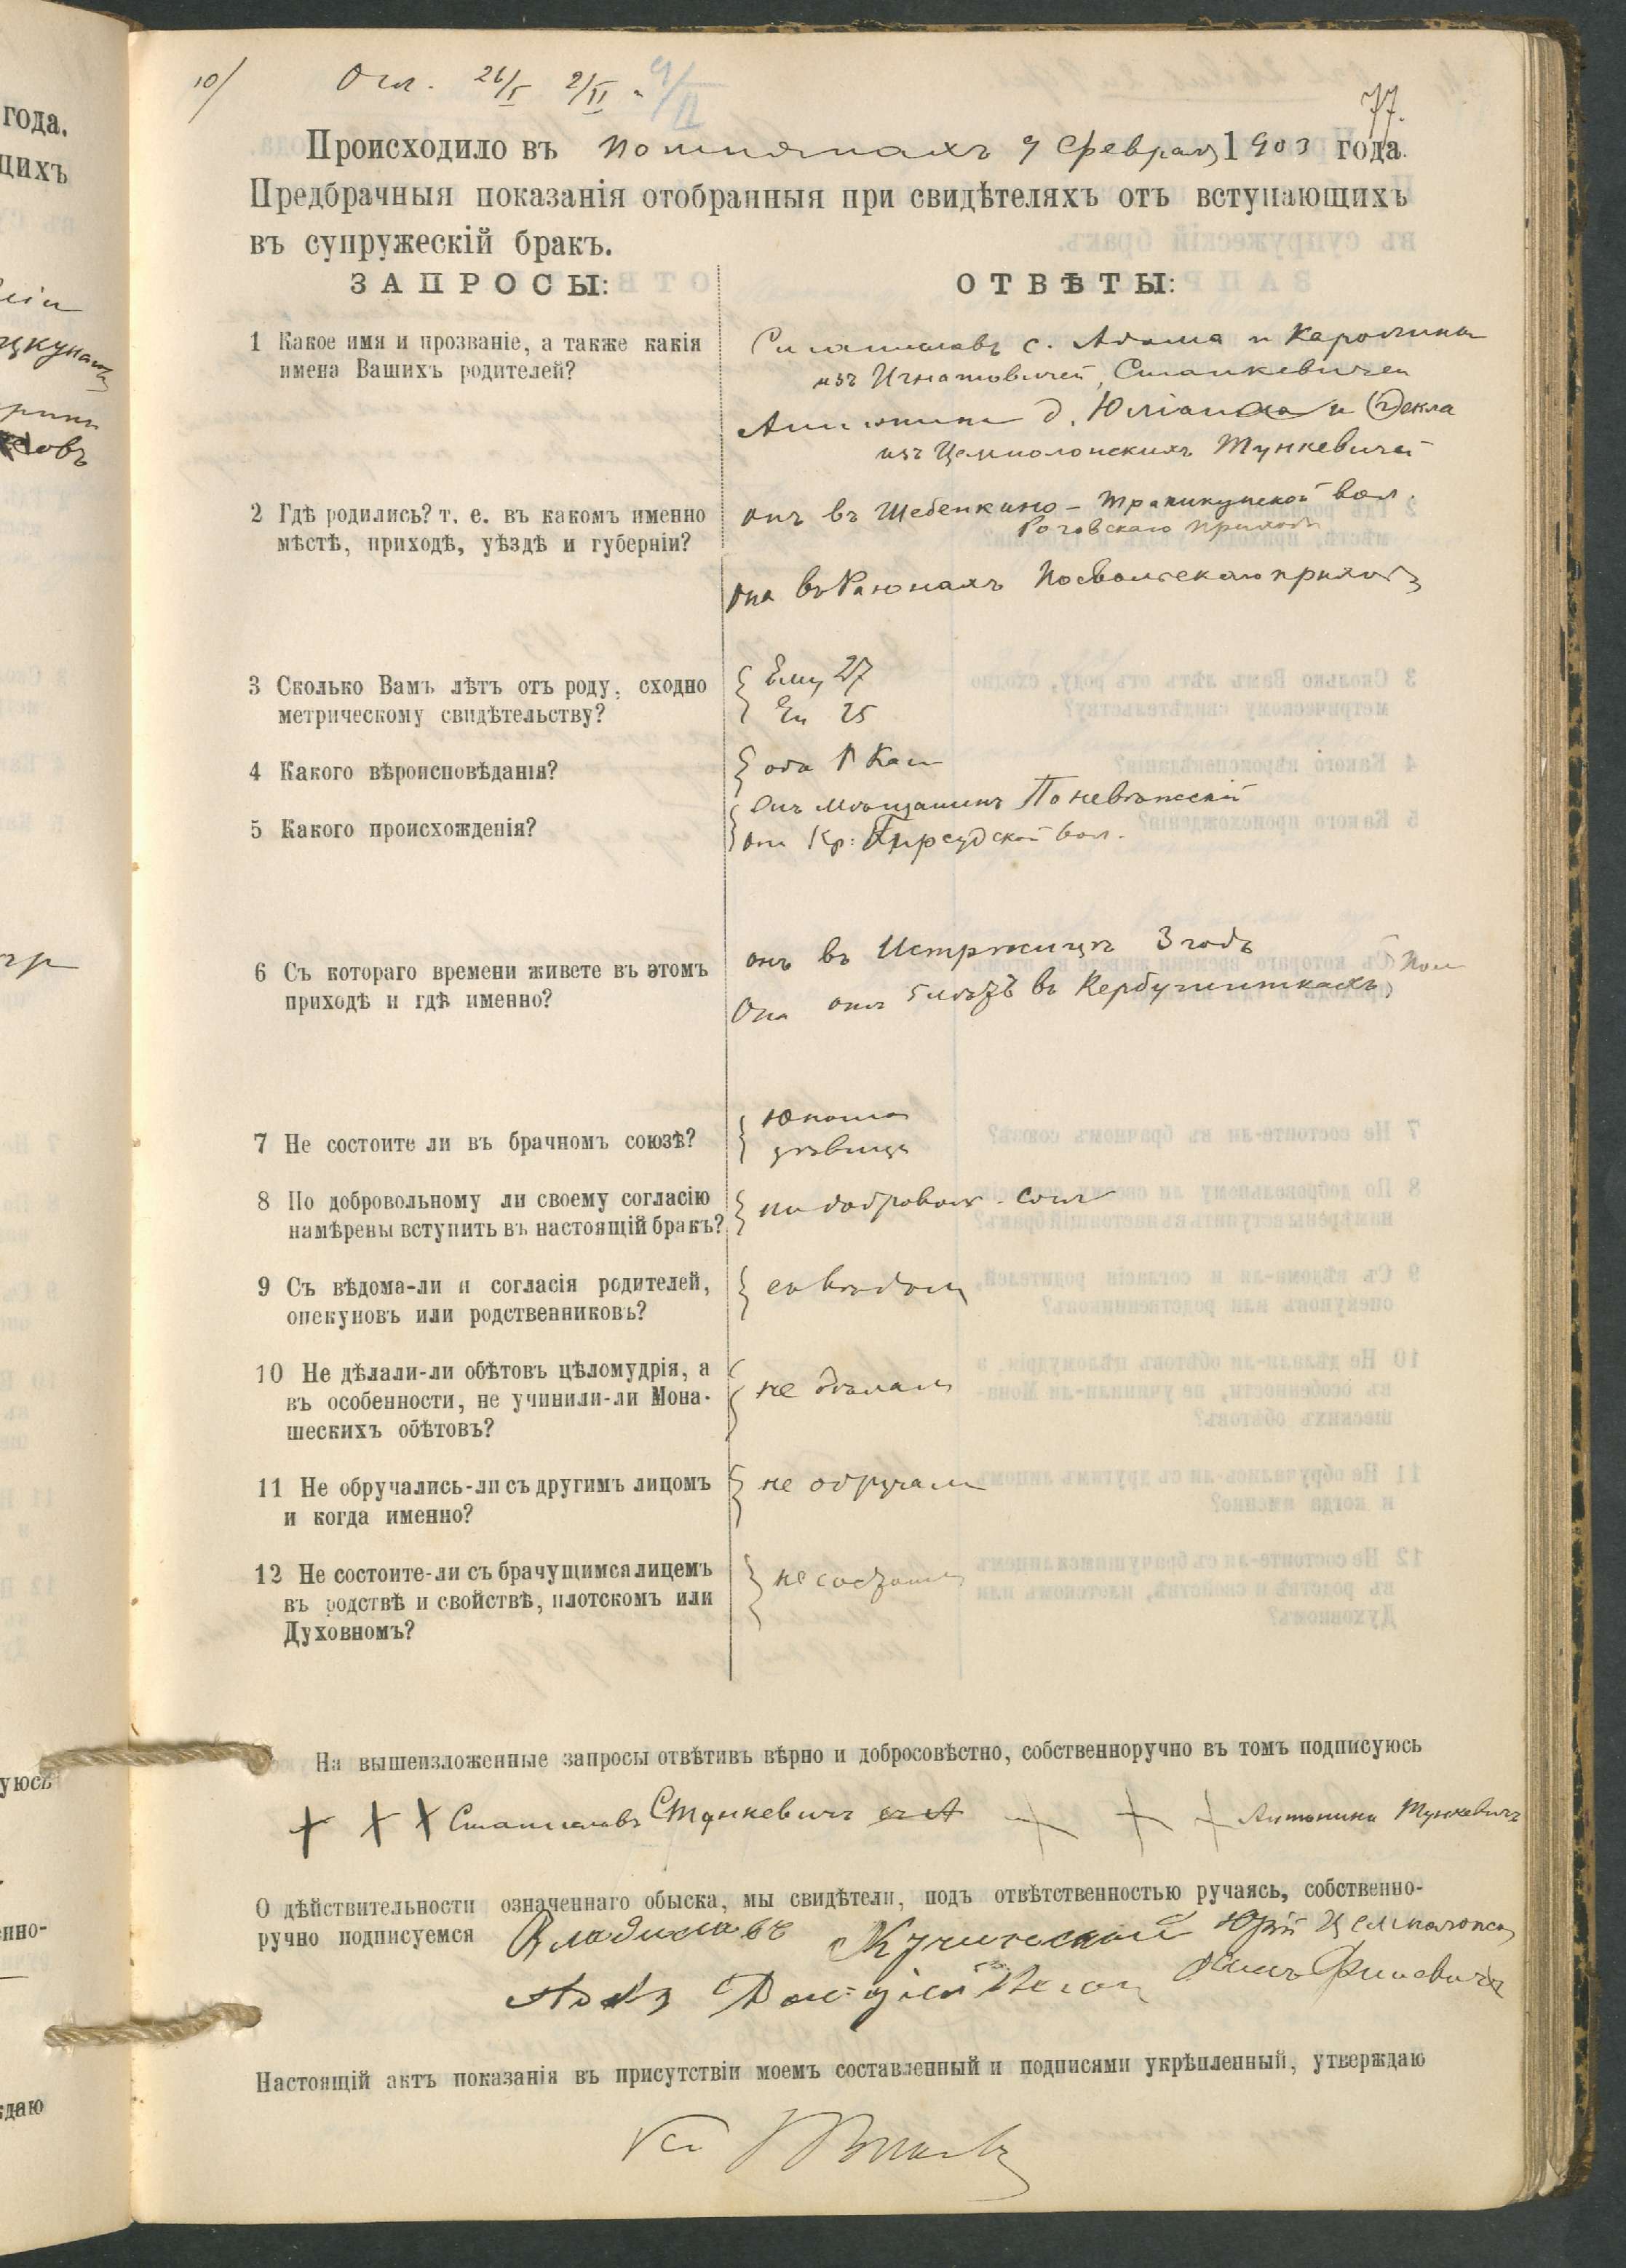 10/ Огл. 26/I 2/II 9/II
77.
Происходило въ 9 Февраля 1903 года.
Предбрачныя показанія отобранныя при свидѣтеляхъ отъ вступающихъ
въ супружескій бракъ.
ЗАПРОСЫ: ОТВѢТЫ:
1 Какое имя и прозваніе, а также какія
имена Вашихъ родителей?
Станиславъ с. Адама и Каролины
изъ Игнатовичей, Станкевичей
Антонина д. Юліана и Текла
изъ Цемнолонскихъ Тункевичей
2 Гдѣ родились? т. е. въ какомъ именно
мѣстѣ, приходѣ, уѣздѣ и губерніи?
онъ въ Шебенкино - Трашкунской вол.
Роговскаго прихода
она въ Раюнахъ Посвольскаго прихода
3 Сколько Вамъ лѣтъ отъ роду, сходно
метрическому свидѣтельству?
Ему 27
Ей 25
4 Какого вѣроисповѣданія?
оба Р Кат
5 Какого происхожденія?
Онъ мѣщанинъ Поневѣжскій
она Кр: вол.
6 Съ котораго времени живете въ этомъ
приходѣ и гдѣ именно?
онъ въ 3 годъ
Она 5 въ Кербутишкахъ
7 Не состоите ли въ брачномъ союзѣ?
Юноша
дѣвица
8 По добровольному ли своему согласію
намѣрены вступить въ настоящій бракъ?
по добровол. согл
9 Съ вѣдома-ли и согласія родителей,
опекуновъ или родственниковъ?
съ вѣдома
10 Не дѣлали-ли обѣтовъ цѣломудрія, а
въ особенности, не учинили-ли Мона-
шескихъ обѣтовъ?
не дѣлали
11 Не обручались-ли съ другимъ лицомъ
и когда именно?
не обручали
12 Не состоите-ли съ брачущимся лицемъ
въ родствѣ и свойствѣ, плотскомъ или
Духовномъ?
не состоимъ
На вышеизложенные запросы отвѣтивъ вѣрно и добросовѣстно, собственноручно въ томъ подписуюсь
+ + + Станиславъ Станкевичъ + + + Антонина Тункевичъ
О дѣйствительности означеннаго обыска, мы свидѣтели, подъ отвѣтственностью ручаясь, собственно-
ручно подписуемся Владиславъ Юрій
Настоящій актъ показанія въ присутствіи моемъ составленный и подписями укрѣпленный, утверждаю